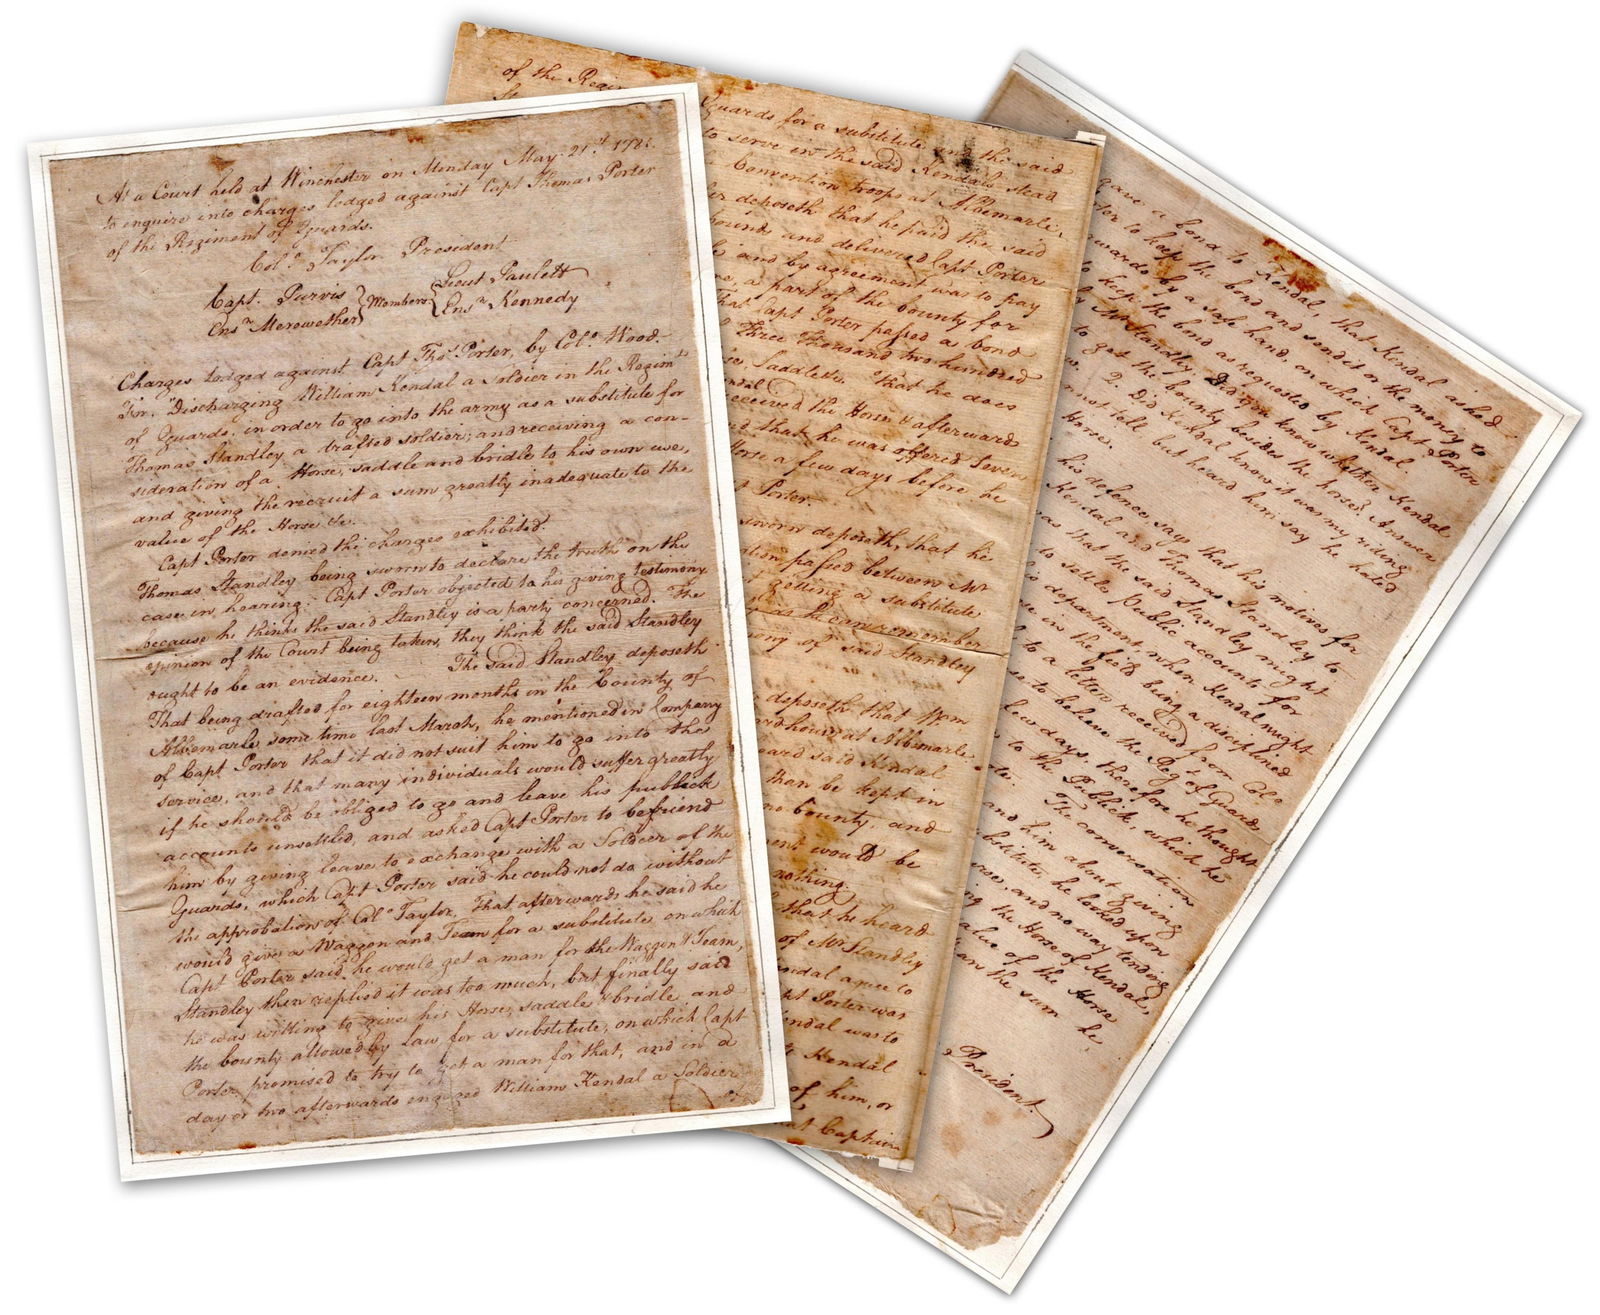 At a Court held at Winchester on Monday May 21st 178
to enquire into charges lodged against Capt Thomas Porter
of the Regiment of Guards.
Colo. Taylor President
Capt. Purvis } Members { Lieut Paulett
Ensn Merewether } { Ensn Kennedy
Charges lodged against Capt Thos. Porter, by Colo. Wood.
For, "Discharging William Kendal a Soldier in the Regimt
of Guards, in order to go into the army as a substitute for
Thomas Standley a drafted soldier; and receiving a con-
sideration of a Horse, saddle and bridle to his own use,
and giving the recruit a sum greatly inadequate to the
value of the Horse &c.
Capt Porter denied the charges exhibited.
Thomas Standley being sworn to declare the truth on the
case in hearing. Capt Porter objected to his giving testimony
because he thinks the said Standley is a party concerned. The
opinion of the Court being taken, they think the said Standley
ought to be an evidence. The said Standley deposeth
That being drafted for eighteen months in the County of
Albemarle some time last March, he mentioned in Company
of Capt Porter that it did not suit him to go into the
service, and that many individuals would suffer greatly
if he should be obliged to go and leave his publick
accounts unsettled, and asked Capt Porter to befriend
him by giving leave to exchange with a Soldier of the
Guards, which Capt Porter said he could not do without
the approbation of Colo. Taylor. That afterwards he said he
would give a Waggon and Team for a substitute on which
Capt Porter said, he would get a man for the Waggon & Team,
Standley then replied it was too much, but finally said
he was willing to give his Horse, saddle & bridle and
the bounty allowed by law for a substitute, on which Capt
Porter promised to try to get a man for that, and in a
day or two afterwards engaged William Kendal a Soldier
of the Regim
Guards for a substitute and the said
to serve in the said Kendals stead
Convention troops at Albemarle.
deposeth that he paid the said
pounds and delivered Capt Porter
and by agreement was to pay
a part of the bounty for
that Capt Porter passed a bond
Three thousand two hundred
Saddle &c. That he does
received the Horse & afterwards
and that he was offered Seven
Horse a few days before he
Porter.
sworn deposeth, that he
passed between Mr
getting a substitute
as he can remember
of said Standley
deposeth that Wm
at Albemarle
heard said Kendal
than be kept in
no bounty, and
would be
nothing.
that he heard
of Mr Standley
Kendal agree to
Capt Porter was
Kendal was to
Kendal
of him, or
that Captain
gave a bond to Kendal, that Kendal asked
to keep the bond and send it or the money to
afterwards by a safe hand, on which Capt Porter
to keep the bond as requested by Kendal.
Mr Standley. Did you know whether Kendal
to get the bounty besides the horse? Answer
2. Did Kendal know it was my riding
not tell but heard him say he hated
Horse.
his defence, says that his motives for
Kendal and Thomas Standley to
was that the said Standley might
to settle Public accounts for
department, when Kendal ought
in the field being a disciplined
to a letter received from Colo.
to believe the Regt of Guards
few days, therefore he thought
to the Publick, which he
The conversation
and him about giving
substitute, he looked upon
and no way tending
the Horse of Kendal,
value of the Horse
than the sum he
President.